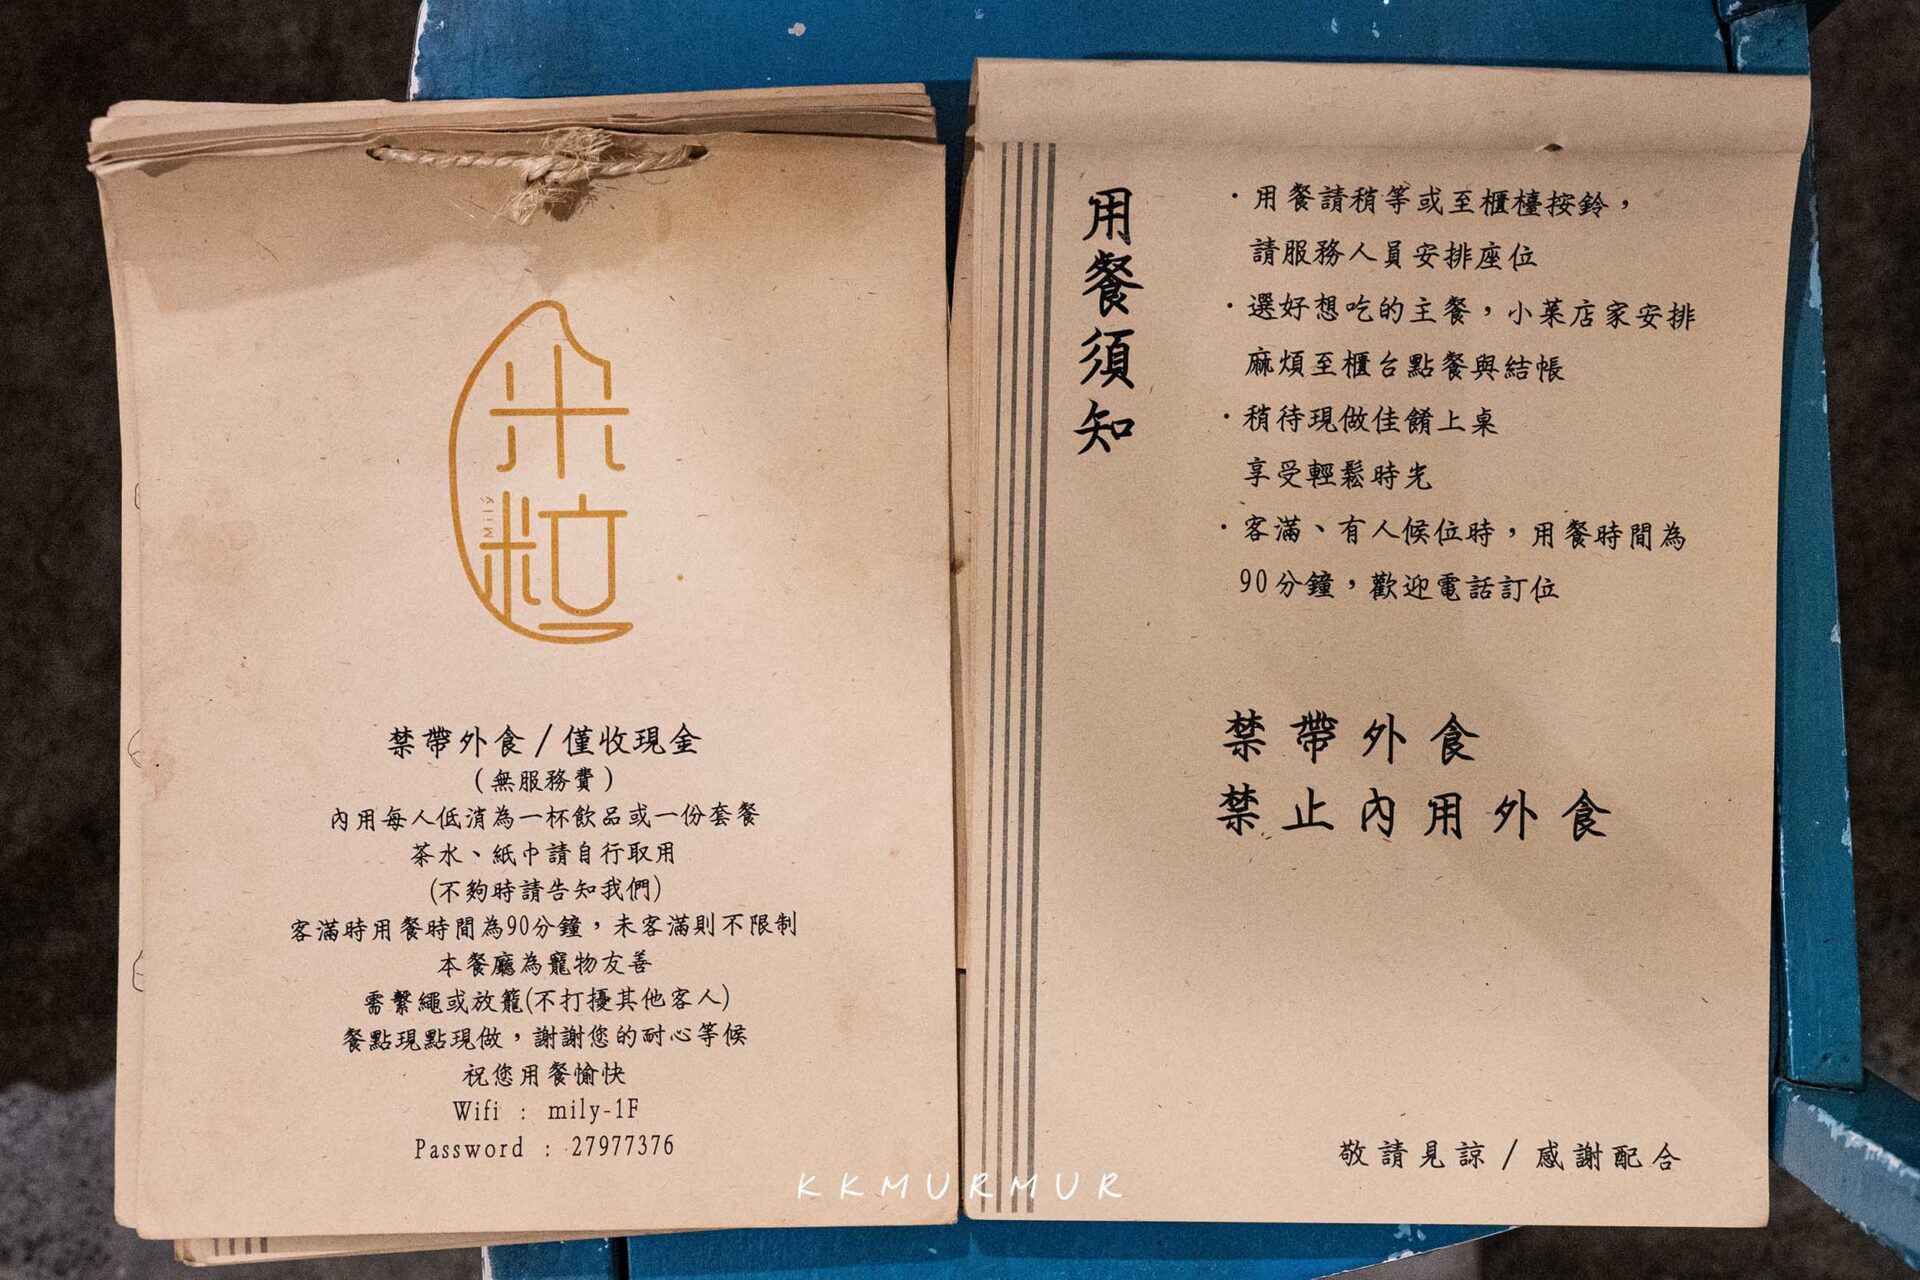 米粒
Milý
禁帶外食/僅收現金
(無服務費)
內用每人低消為一杯飲品或一份套餐
茶水、紙巾請自行取用
(不夠時請告知我們)
客滿時用餐時間為90分鐘，未客滿則不限制
本餐廳為寵物友善
需繫繩或放籠(不打擾其他客人)
餐點現點現做，謝謝您的耐心等候
祝您用餐愉快
Wifi : mily-1F
Password : 27977376
用餐須知
·用餐請稍等或至櫃檯按鈴，
請服務人員安排座位
·選好想吃的主餐，小菜店家安排
麻煩至櫃台點餐與結帳
·稍待現做佳餚上桌
享受輕鬆時光
·客滿、有人候位時，用餐時間為
90分鐘，歡迎電話訂位
禁帶外食
禁止內用外食
敬請見諒/感謝配合
KKMURMUR